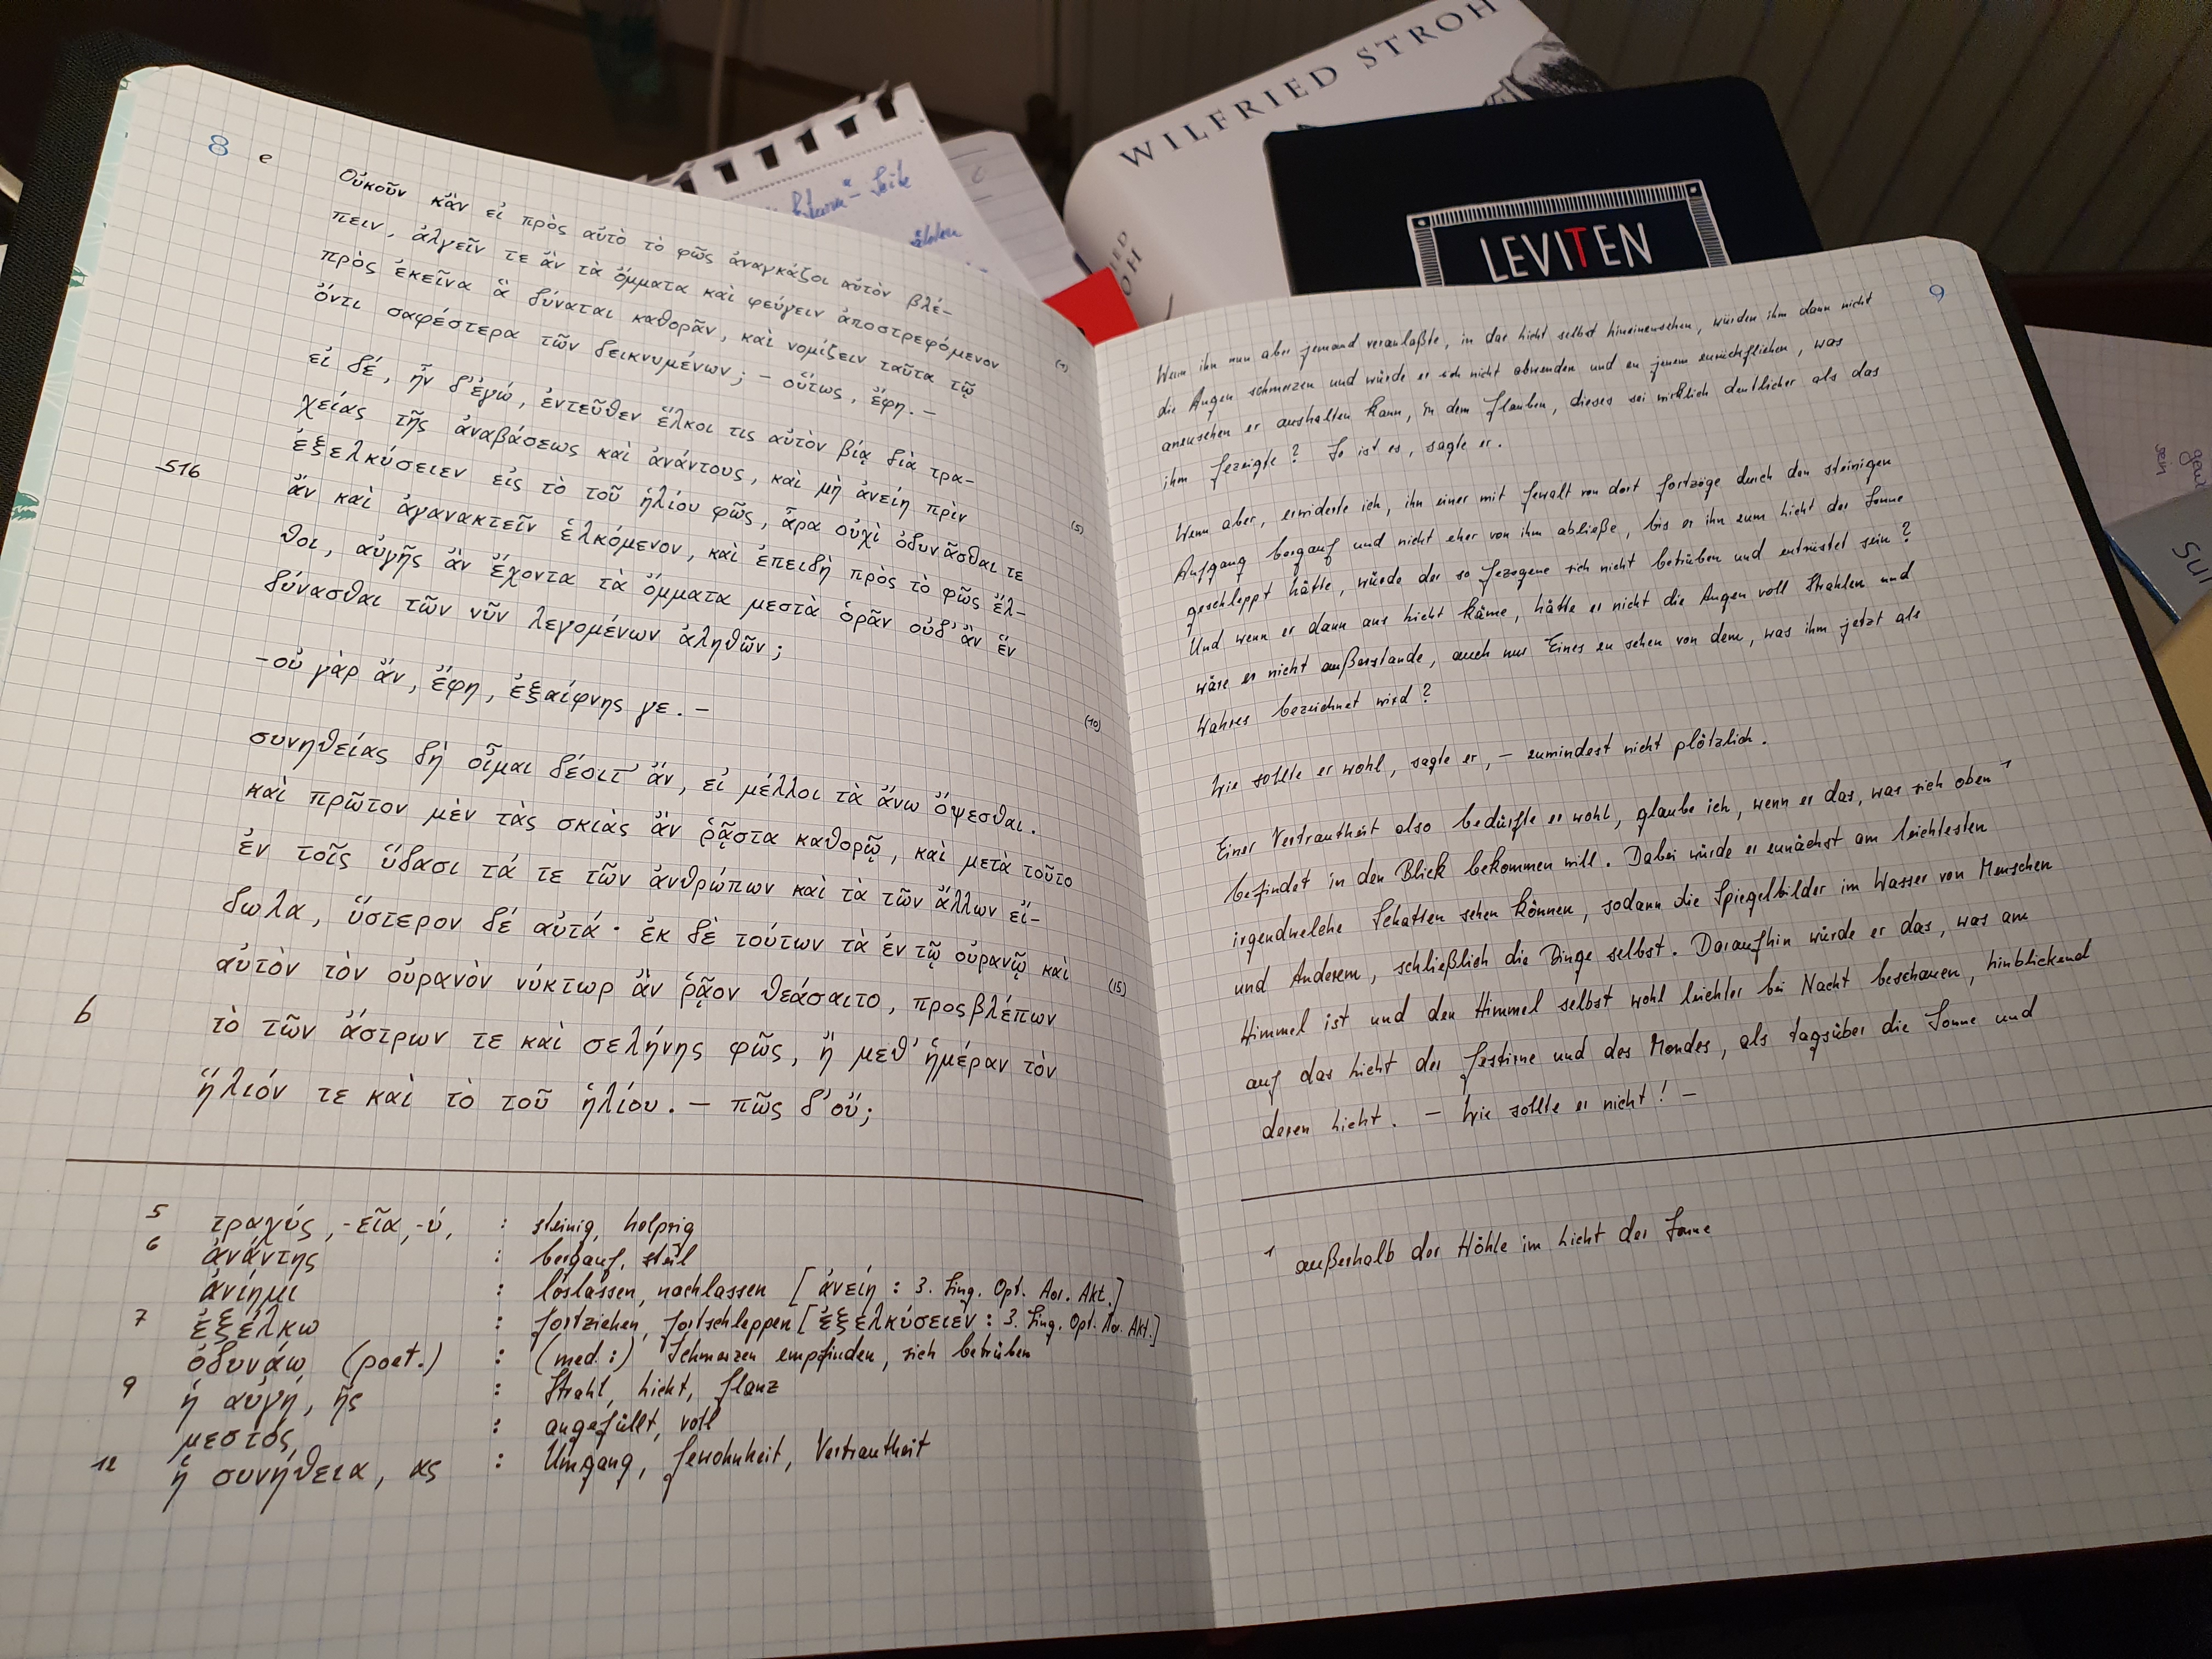 WILFRIED STROH
LEVITEN
8 e
Οὐκοῦν κἂν εἰ πρὸς αὐτὸ τὸ φῶς ἀναγκάζοι αὐτὸν βλέ-
πειν, ἀλγεῖν τε ἂν τὰ ὄμματα καὶ φεύγειν ἀποστρεφόμενον
πρὸς ἐκεῖνα ἃ δύναται καθορᾶν, καὶ νομίζειν ταῦτα τῷ (1)
ὄντι σαφέστερα τῶν δεικνυμένων; – οὕτως, ἔφη. –
εἰ δέ, ἦν δ'ἐγώ, ἐντεῦθεν ἕλκοι τις αὐτὸν βίᾳ διὰ τρα-
χείας τῆς ἀναβάσεως καὶ ἀνάντους, καὶ μὴ ἀνείη πρὶν
516 ἐξελκύσειεν εἰς τὸ τοῦ ἡλίου φῶς, ἆρα οὐχὶ ὀδυνᾶσθαι τε (5)
ἂν καὶ ἀγανακτεῖν ἑλκόμενον, καὶ ἐπειδὴ πρὸς τὸ φῶς ἔλ-
θοι, αὐγῆς ἂν ἔχοντα τὰ ὄμματα μεστὰ ὁρᾶν οὐδ'ἂν ἓν
δύνασθαι τῶν νῦν λεγομένων ἀληθῶν;
-οὐ γὰρ ἄν, ἔφη, ἐξαίφνης γε. – (10)
συνηθείας δὴ οἶμαι δέοιτ' ἄν, εἰ μέλλοι τὰ ἄνω ὄψεσθαι.
καὶ πρῶτον μὲν τὰς σκιὰς ἂν ῥᾷστα καθορῷ, καὶ μετὰ τοῦτο
ἐν τοῖς ὕδασι τά τε τῶν ἀνθρώπων καὶ τὰ τῶν ἄλλων εἴ-
δωλα, ὕστερον δέ αὐτά· ἐκ δὲ τούτων τὰ ἐν τῷ οὐρανῷ καὶ
αὐτὸν τὸν οὐρανὸν νύκτωρ ἂν ῥᾷον θεάσαιτο, προςβλέπων (15)
b τὸ τῶν ἄστρων τε καὶ σελήνης φῶς, ἢ μεθ' ἡμέραν τὸν
ἥλιόν τε καὶ τὸ τοῦ ἡλίου. – πῶς δ'οὔ;
5 τραχύς, -εῖα, -ύ, : steinig, holprig
6 ἀνάντης : bergauf, steil
ἀνίημι : loslassen, nachlassen [ἀνείη : 3. Sing. Opt. Aor. Akt.]
7 ἐξέλκω : fortziehen, fortschleppen [ἐξελκύσειεν : 3. Sing. Opt. Aor. Akt.]
ὀδυνάω (poet.) : (med.:) Schmerzen empfinden, sich betrüben
9 ἡ αὐγή, ῆς : Strahl, Licht, Glanz
μεστός, : angefüllt, voll
12 ἡ συνήθεια, ας : Umgang, Gewohnheit, Vertrautheit
9
Wenn ihn nun aber jemand veranlaßte, in das Licht selbst hineinzusehen, würden ihm dann nicht
die Augen schmerzen und würde er sich nicht abwenden und zu jenem zurückfliehen, was
anzusehen er aushalten kann, in dem Glauben, dieses sei wirklich deutlicher als das
ihm Gezeigte? So ist es, sagte er.
Wenn aber, erwiderte ich, ihn einer mit Gewalt von dort fortzöge durch den steinigen
Aufgang bergauf und nicht eher von ihm abließe, bis er ihn zum Licht der Sonne
geschleppt hätte, würde der so Gezogene sich nicht betrüben und entrüstet sein?
Und wenn er dann ans Licht käme, hätte er nicht die Augen voll Strahlen und
wäre er nicht außerstande, auch nur Eines zu sehen von dem, was ihm jetzt als
Wahres bezeichnet wird?
Wie sollte er wohl, sagte er, – zumindest nicht plötzlich.
Einer Vertrautheit also bedürfte er wohl, glaube ich, wenn er das, was sich oben¹
befindet in den Blick bekommen will. Dabei würde er zunächst am leichtesten
irgendwelche Schatten sehen können, sodann die Spiegelbilder im Wasser von Menschen
und Anderem, schließlich die Dinge selbst. Daraufhin würde er das, was am
Himmel ist und den Himmel selbst wohl leichter bei Nacht beschauen, hinblickend
auf das Licht der Gestirne und des Mondes, als tagsüber die Sonne und
deren Licht. – Wie sollte er nicht! –
¹ außerhalb der Höhle im Licht der Sonne